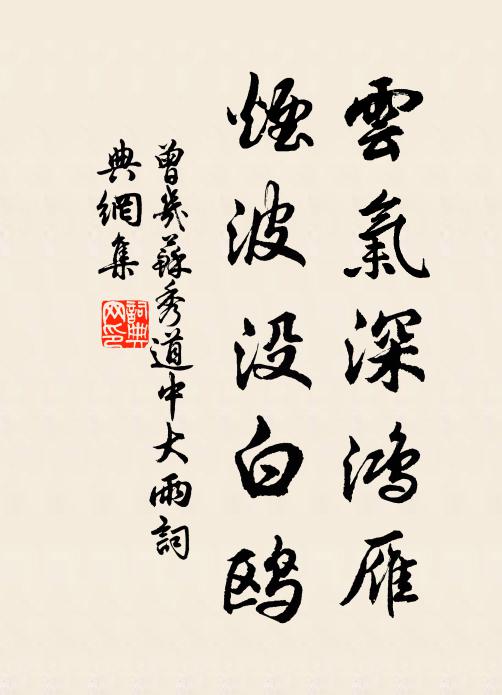 雲氣深鴻雁
煙波没白鸥
曾幾蘇秀道中大雨詞
典網集
詞典网印